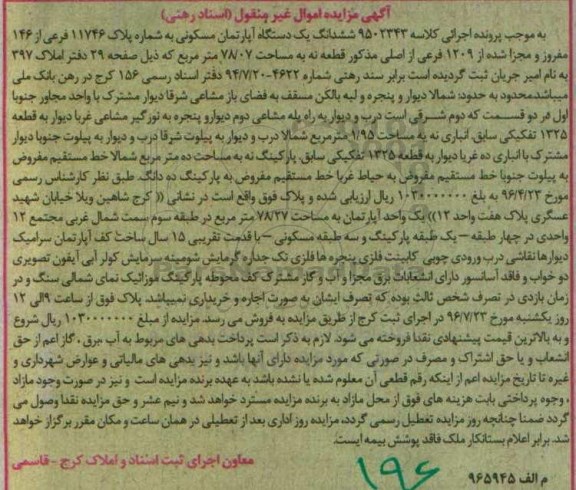 آگهی مزایده اموال غیر منقول (اسناد رهنی)
به موجب پرونده اجرائی کلاسه ۹۵۰۲۳۴۳ ششدانگ یک دستگاه آپارتمان مسکونی به شماره پلاک ۱۱۷۴۶ فرعی از ۱۴۶
مفروز و مجزا شده از ۱۳۰۹ فرعی از اصلی مذکور قطعه نه به مساحت ۷۸/۰۷ متر مربع که ذیل صفحه ۲۹ دفتر املاک ۳۹۷
به نام امیر جریان ثبت گردیده است برابر سند رهنی شماره ۴۶۲۲-۹۴/۷/۲۰ دفتر اسناد رسمی ۱۵۶ کرج در رهن بانک ملی
میباشد.محدود به حدود: شمالا دیوار و پنجره و لبه بالکن مسقف به فضای باز مشاعی شرقا دیوار مشترک با واحد مجاور جنوبا
اول در دو قسمت که دوم شرقی است درب و دیوار به راه پله مشاعی دوم دیوارو پنجره به نورگیر مشاعی غربا دیوار به قطعه
۱۳۲۵ تفکیکی سابق. انباری نه به مساحت ۱/۹۵ مترمربع شمالا درب و دیوار به پیلوت شرقا درب و دیوار به پیلوت جنوبا دیوار
مشترک با انباری ده غربا دیوار به قطعه ۱۳۲۵ تفکیکی سابق. پارکینگ نه به مساحت ده متر مربع شمالا خط مستقیم مفروض
به پیلوت جنوبا خط مستقیم مفروض به حیاط غربا خط مستقیم مفروض به پارکینگ ده دانگ. طبق نظر کارشناس رسمی
مورخ ۹۶/۴/۲۳ به بلغ ۱۰۳۰۰۰۰۰۰۰ ریال ارزیابی شده و پلاک فوق واقع است در نشانی (( کرج شاهین ویلا خیابان شهید
عسگری پلاک هفت واحد ۱۲)) یک واحد آپارتمان به مساحت ۷۸/۲۷ متر مربع در طبقه سوم سمت شمال غربی مجتمع ۱۲
واحدی در چهار طبقه – یک طبقه پارکینگ و سه طبقه مسکونی – با قدمت تقریبی ۱۵ سال ساخت کف آپارتمان سرامیک
دیوارها نقاشی درب ورودی چوبی کابینت فلزی پنجره ها فلزی تک جداره گرمایش شومینه سرمایش کولر آبی آیفون تصویری
دو خواب و فاقد آسانسور دارای انشعابات برق مجزا و آب و گاز مشترک کف محوطه پارکینگ موزائیک نمای شمالی سنگ و در
زمان بازدی در تصرف شخص ثالث بوده که تصرف ایشان به صورت اجاره و خریداری نمیباشد. پلاک فوق از ساعت ۹ الی ۱۲
روز یکشنبه مورخ ۹۶/۷/۲۳ در اجرای ثبت کرج از طریق مزایده به فروش می رسد. مزایده از مبلغ ۱۰۳۰۰۰۰۰۰۰ ریال شروع
و به بالاترین قیمت پیشنهادی نقدا فروخته می شود. لازم به ذکر است پرداخت بدهی های مربوط به آب .برق ، گاز اعم از حق
انشعاب و یا حق اشتراک و مصرف در صورتی که مورد مزایده دارای آنها باشد و نیز بدهی های مالیاتی و عوارض شهرداری و
غیره تا تاریخ مزایده اعم از اینکه رقم قطعی آن معلوم شده یا نشده باشد به عهده برنده مزایده است و نیز در صورت وجود مازاد
، وجوه پرداختی بابت هزینه های فوق از محل مازاد به برنده مزایده مسترد خواهد شد و نیم عشر و حق مزایده نقدا وصول می
گردد ضمنا چنانچه روز مزایده تعطیل رسمی گردد، مزایده روز اداری بعد از تعطیلی در همان ساعت و مکان مقرر برگزار خواهد
شد. برابر اعلام بستانکار ملک فاقد پوشش بیمه ایست.
معاون اجرای ثبت اسناد و املاک کرج - قاسمی
م الف ۹۶۵۹۴۵
۱۹۶